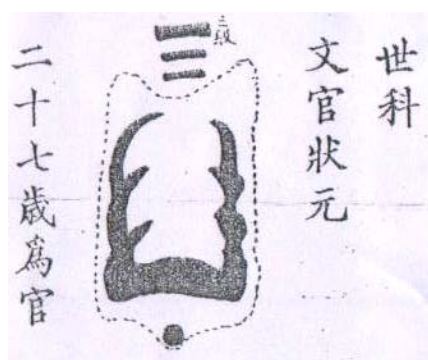 世科
文官狀元
三級
二十七歲為官